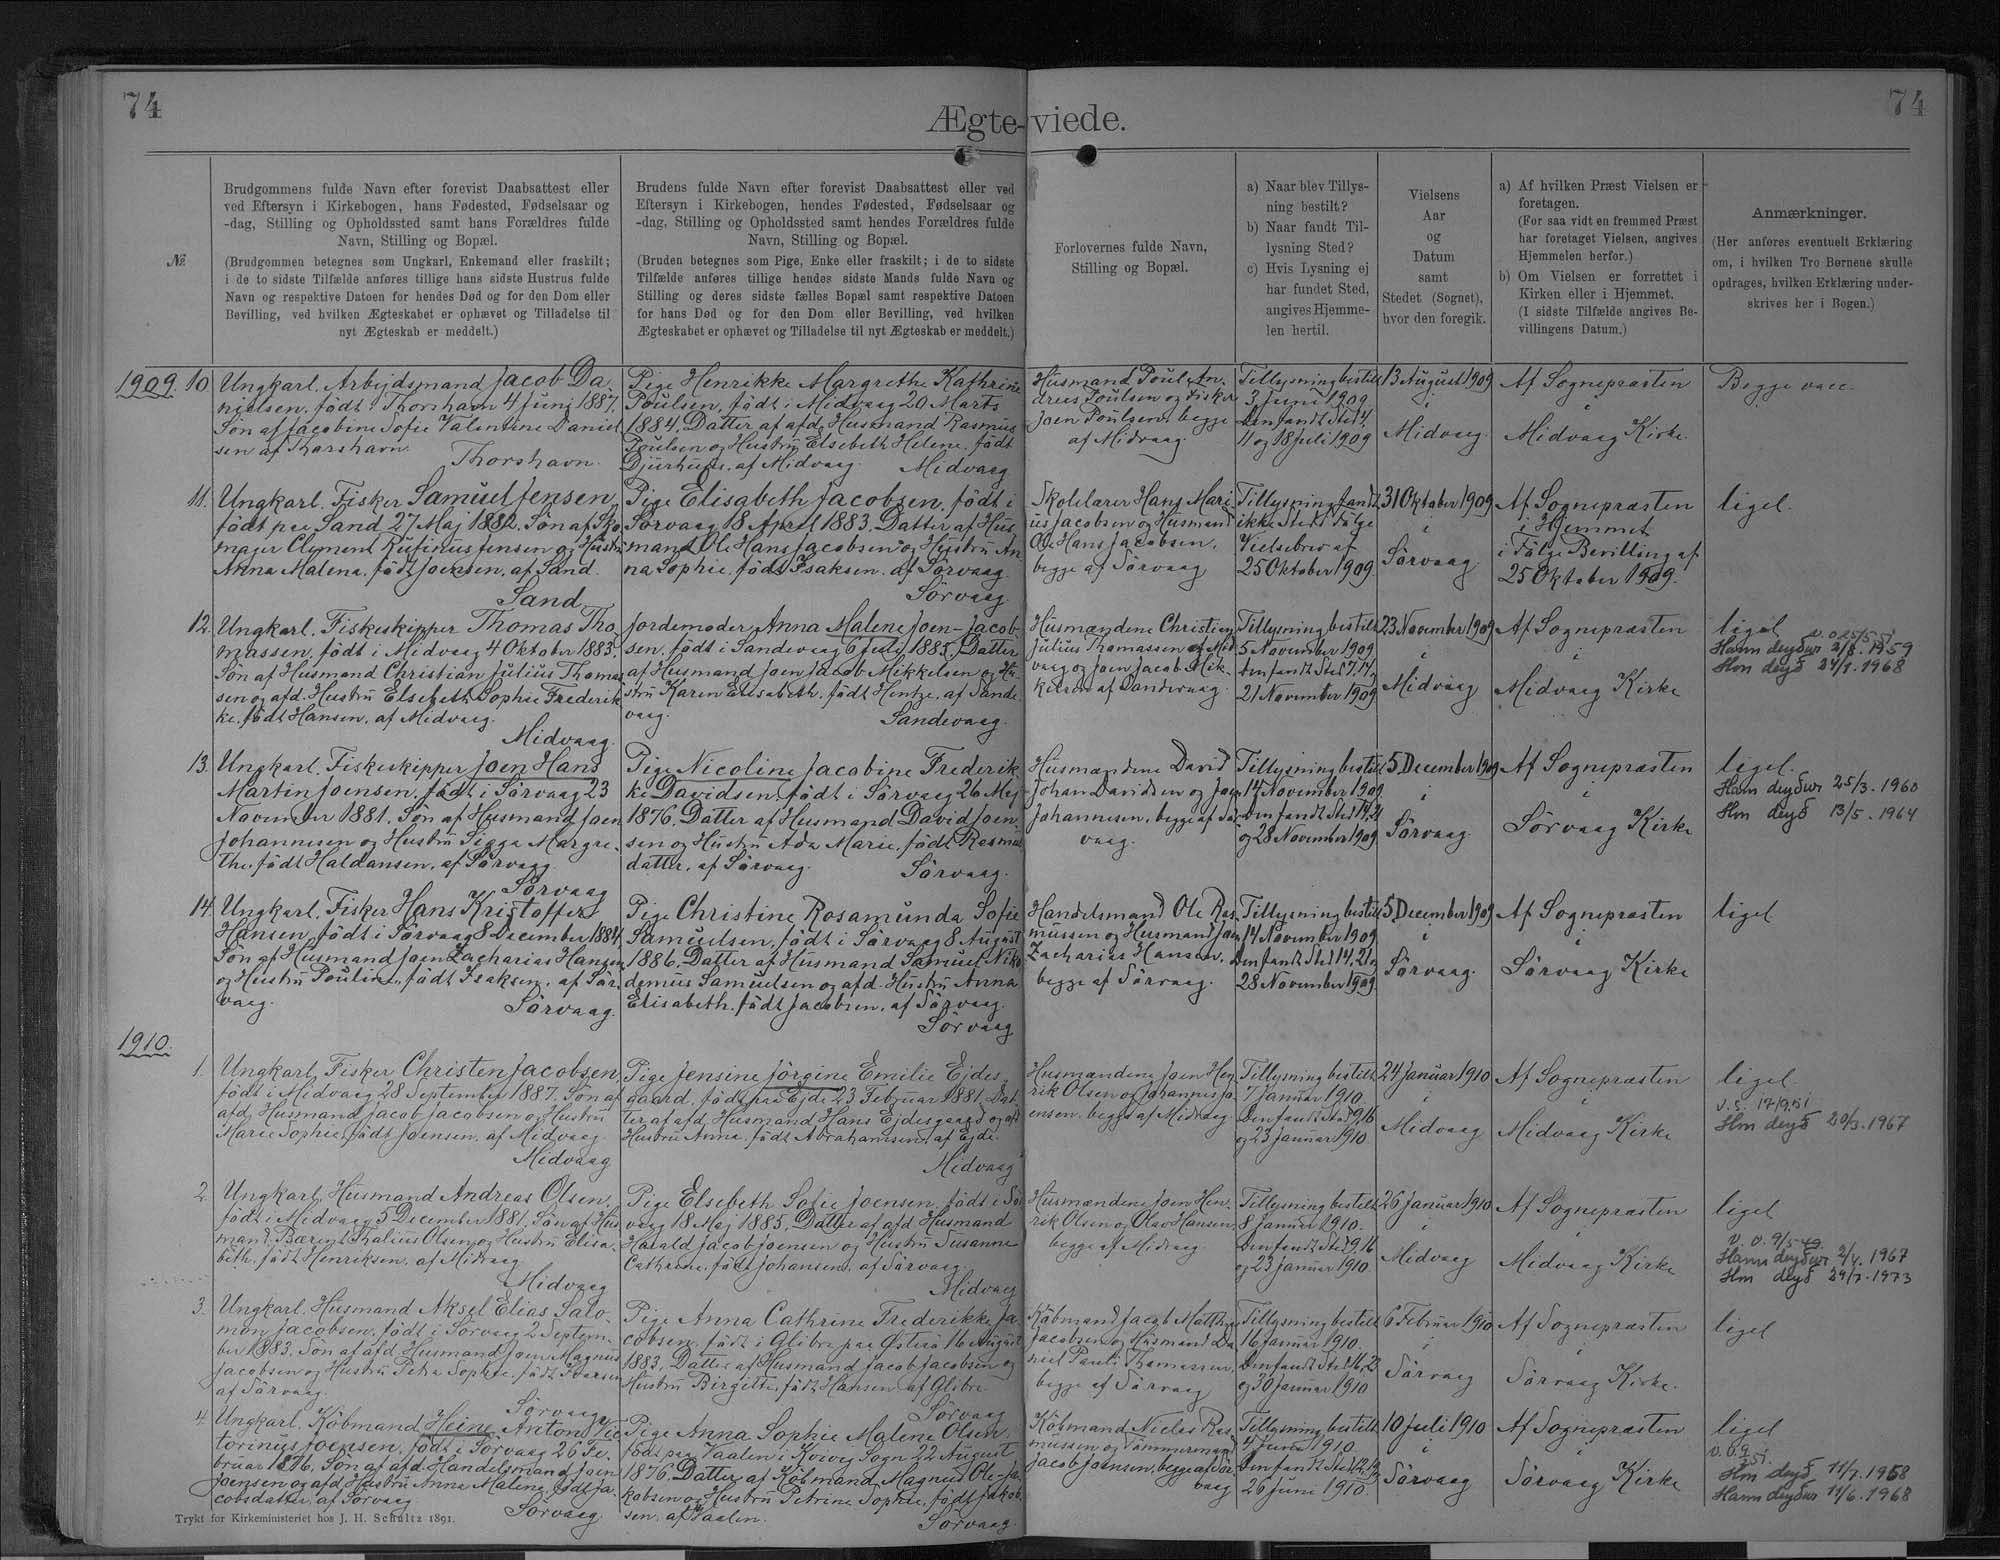 74
Ægte-viede.
74
№
Brudgommens fulde Navn efter forevist Daabsattest eller
ved Eftersyn i Kirkebogen, hans Fødested, Fødselsaar og
-dag, Stilling og Opholdssted samt hans Forældres fulde
Navn, Stilling og Bopæl.
(Brudgommen betegnes som Ungkarl, Enkemand eller fraskilt;
i de to sidste Tilfælde anføres tillige hans sidste Hustrus fulde
Navn og respektive Datoen for hendes Død og for den Dom eller
Bevilling, ved hvilken Ægteskabet er ophævet og Tilladelse til
nyt Ægteskab er meddelt.)
Brudens fulde Navn efter forevist Daabsattest eller ved
Eftersyn i Kirkebogen, hendes Fødested, Fødselsaar og
-dag, Stilling og Opholdssted samt hendes Forældres fulde
Navn, Stilling og Bopæl.
(Bruden betegnes som Pige, Enke eller fraskilt; i de to sidste
Tilfælde anføres tillige hendes sidste Mands fulde Navn og
Stilling og deres sidste fælles Bopæl samt respektive Datoen
for hans Død og for den Dom eller Bevilling, ved hvilken
Ægteskabet er ophævet og Tilladelse til nyt Ægteskab er meddelt.)
Forlovernes fulde Navn,
Stilling og Bopæl.
a) Naar blev Tillys-
ning bestilt?
b) Naar fandt Til-
lysning Sted?
c) Hvis Lysning ej
har fundet Sted,
angives Hjemme-
len hertil.
Vielsens
Aar
og
Datum
samt
Stedet (Sognet),
hvor den foregik.
a) Af hvilken Præst Vielsen er
foretagen.
(For saa vidt en fremmed Præst
har foretaget Vielsen, angives
Hjemmelen herfor.)
b) Om Vielsen er forrettet i
Kirken eller i Hjemmet.
(I sidste Tilfælde angives Be-
villingens Datum.)
Anmærkninger.
(Her anføres eventuelt Erklæring
om, i hvilken Tro Børnene skulle
opdrages, hvilken Erklæring under-
skrives her i Bogen.)
1909. 10. Ungkarl. Arbejdsmand Jacob Da-
nielsen, födt i Thorshavn 4 Juni 1887.
Søn af Jacobine Sofie Valentine Daniel
sen af Thorshavn.
Thorshavn.
Pige Henrikke Margrethe Kathrine
Poulsen, födt i Midvaag 20 Marts
1884. Datter af afd. Husmand Rasmus
Poulsen og Hustru Elsebeth Helene, födt
Djurhuus, af Midvaag. Midvaag
Husmand Poul An-
dreas Poulsen og Fisker
Joen Poulsen, begge
af Midvaag.
Tillysning bestilt
3 Juni 1909
den fandt Sted 4,
11 og 18 Juli 1909
13 August 1909
i
Midvaag.
Af Sognepræsten
i
Midvaag Kirke.
Begge vacc.
11. Ungkarl. Fisker Samuel Jensen,
födt paa Sand 27 Maj 1882. Søn af Sko-
mager Clement Rufinus Jensen og Hustru
Anna Malena, födt Joensen, af Sand.
Sand
Pige Elisabeth Jacobsen, födt i
Sörvaag 18 April 1883. Datter af Hus-
mand Ole Hans Jacobsen og Hustru An-
na Sophie, födt Isaksen, af Sörvaag.
Sörvaag
Skolelærer Hans Mari-
us Jacobsen og Husmand
Ole Hans Jacobsen,
begge af Sörvaag
Tillysning fandt
ikke Sted i Følge
Vielsebrev af
25 Oktober 1909.
31 Oktober 1909
i
Sörvaag
Af Sognepræsten
i Hjemmet
i Følge Bevilling af
25 Oktober 1909.
ligel.
12. Ungkarl. Fiskeskipper Thomas Tho-
massen, födt i Midvaag 4 Oktober 1883.
Søn af Husmand Christian Julius Thomas
sen og afd. Hustru Elsebeth Sophie Frederik
ke, födt Hansen, af Midvaag.
Midvaag.
Jordemoder Anna Malene Joen-Jacob-
sen, födt i Sandevaag 6 July 1885. Datter
af Husmand Joen Jacob Mikkelsen og Hu-
stru Karen Elisabeth, födt Hentze, af Sande
vaag.
Sandevaag.
Husmændene Christian
Julius Thomassen af Mid
vaag og Joen Jacob Mik-
kelsen af Sandevaag.
Tillysning bestilt
5 November 1909
den fandt Sted 7, 14,
21 November 1909
23 November 1909
i
Midvaag
Af Sognepræsten
i
Midvaag Kirke
ligel
Hann deyður 2/8. 1959
Hon deyð 24/1. 1968
13. Ungkarl. Fiskeskipper Joen Hans
Martin Joensen, födt i Sörvaag 23
November 1881. Søn af Husmand Joen
Johannesen og Hustru Sigga Margre-
the, födt Haldansen, af Sörvaag
Sörvaag
Pige Nicoline Jacobine Frederik-
ke Davidsen, födt i Sörvaag 26 Maj
1876. Datter af Husmand David Joen-
sen og Hustru Ada Marie, födt Rasmus
datter, af Sörvaag.
Sörvaag.
Husmændene David
Johan Davidsen og Joen
Johannesen, begge af Sör
vaag.
Tillysning bestilt
14 November 1909
den fandt Sted 14, 21
og 28 November 1909
5 December 1909
i
Sörvaag
Af Sognepræsten
i
Sörvaag Kirke
ligel.
Hann deyður 25/3. 1960
Hon deyð 13/5. 1964
14. Ungkarl. Fisker Hans Kristoffer
Hansen, födt i Sörvaag 8 December 1884
Søn af Husmand Joen Zacharias Hansen
og Hustru Pouline, födt Isaksen, af Sör-
vaag.
Sörvaag.
Pige Christine Rosamunda Sofie
Samuelsen, födt i Sörvaag 8 August
1886. Datter af Husmand Samuel Niko
demus Samuelsen og afd. Hustru Anna
Elisabeth, födt Jacobsen, af Sörvaag.
Sörvaag
Handelsmand Ole Ras-
mussen og Husmand Joen
Zacharias Hansen,
begge af Sörvaag.
Tillysning bestilt
14 November 1909
den fandt Sted 14, 21 og
28 November 1909
5 December 1909
i
Sörvaag.
Af Sognepræsten
i
Sörvaag Kirke
ligel
1910.
1. Ungkarl, Fisker Christen Jacobsen,
födt i Midvaag 28 September 1887. Søn af
afd. Husmand Jacob Jacobsen og Hustru
Marie Sophie, födt Joensen, af Midvaag.
Midvaag
Pige Jensine Jörgine Emilie Ejdes-
gaard, födt paa Ejde 23 Februar 1881. Dat-
ter af afd. Husmand Hans Ejdesgaard og afd
Hustru Anna, födt Abrahamsen, af Ejde.
Midvaag
Husmændene Joen Hen-
rik Olsen og Johannes Jo-
ensen, begge af Midvaag
Tillysning bestilt
7 Januar 1910.
Den fandt Sted 9, 16
og 23 Januar 1910
24 Januar 1910
i
Midvaag
Af Sognepræsten
i
Midvaag Kirke
ligel.
v. s. 17/9.51
Hon deyð 20/3. 1967
2. Ungkarl, Husmand Andreas Olsen,
födt i Midvaag 5 December 1881. Søn af Hus
mand Bærent Thalius Olsen og Hustru Elisa-
beth, födt Henriksen, af Midvaag
Midvaag
Pige Elsebeth Sofie Joensen, födt i Sör
vaag 18 Maj 1885. Datter af afd. Husmand
Harald Jacob Joensen og Hustru Susanne
Cathrine, födt Johansen, af Sörvaag.
Midvaag
Husmændene Joen Hen-
rik Olsen og Olav Hansen,
begge af Midvaag.
Tillysning bestilt
8 Januar 1910.
Den fandt Sted 9, 16
og 23 Januar 1910
26 Januar 1910
i
Midvaag
Af Sognepræsten
i
Midvaag Kirke
ligel
v. o. 9/5-49
Hann deyður 2/4. 1967
Hon deyð 29/7. 1973
3. Ungkarl. Husmand Aksel Elias Salo-
mon Jacobsen, födt i Sörvaag 2 Septem-
ber 1883. Søn af afd. Husmand Joen Magnus
Jacobsen og Hustru Petra Sophie, födt Iversen
af Sörvaag.
Sörvaag
Pige Anna Cathrine Frederikke Ja-
cobsen, födt i Glibre paa Østerö 16 August
1883. Datter af Husmand Jacob Jacobsen og
Hustru Birgitte, födt Hansen, af Glibre
Sörvaag
Købmand Jacob Matthias
Jacobsen og Husmand Da
niel Pauli Thomassen,
begge af Sörvaag
Tillysning bestilt
16 Januar 1910.
Den fandt Sted 16, 23
og 30 Januar 1910
6 Februar 1910
i
Sörvaag
Af Sognepræsten
i
Sörvaag Kirke.
ligel
4. Ungkarl. Köbmand Heine Anton Vic
torinus Joensen, födt i Sörvaag 26 Fe-
bruar 1876. Søn af afd. Handelsmand Joen
Joensen og afd. Hustru Anna Malene, födt Ja-
cobsdatter, af Sörvaag
Sörvaag
Pige Anna Sophie Malene Olsen,
födt paa Vaalen i Kvivig Sogn 22 August
1876. Datter af Köbmand Magnus Ole Ja-
kobsen og Hustru Petrine Sophie, födt Jakob
sen, af Vaalen.
Sörvaag.
Köbmand Niclas Ras
mussen og Tömmermand
Jacob Joensen, begge af Sör-
vaag
Tillysning bestilt
4 Juni 1910.
Den fandt Sted 12, 19,
26 Juni 1910.
10 Juli 1910
i
Sörvaag
Af Sognepræsten
i
Sörvaag Kirke
ligel
Hon deyð 11/7. 1958
Hann deyður 11/6. 1968
Trykt for Kirkeministeriet hos J. H. Schultz 1891.